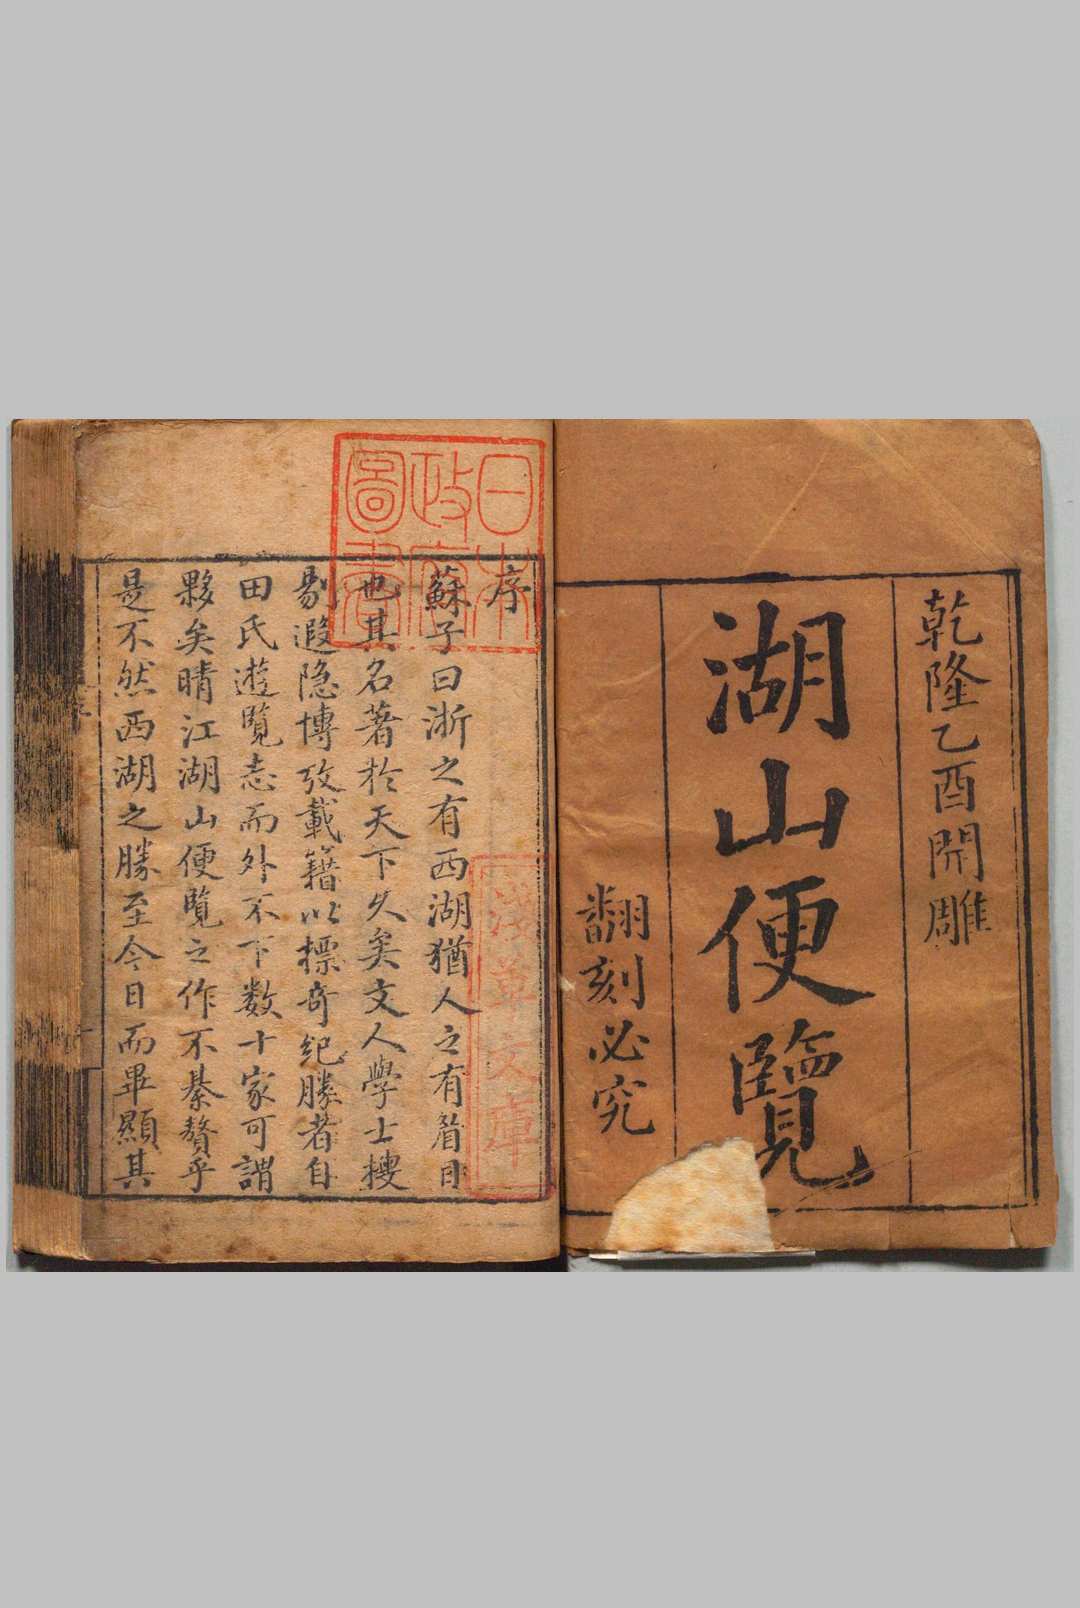 乾隆乙酉開雕
湖山便覽
翻刻必究
日本
政府
圖書
序
蘇子曰浙之有西湖猶人之有眉目
也其名著於天下久矣文人學士摟
剔遐隐博攷載籍以標奇紀勝者自
田氏遊覽志而外不下数十家可謂
夥矣晴江湖山便覽之作不綦贅乎
是不然西湖之勝至今日而畢顯其
淺草文庫